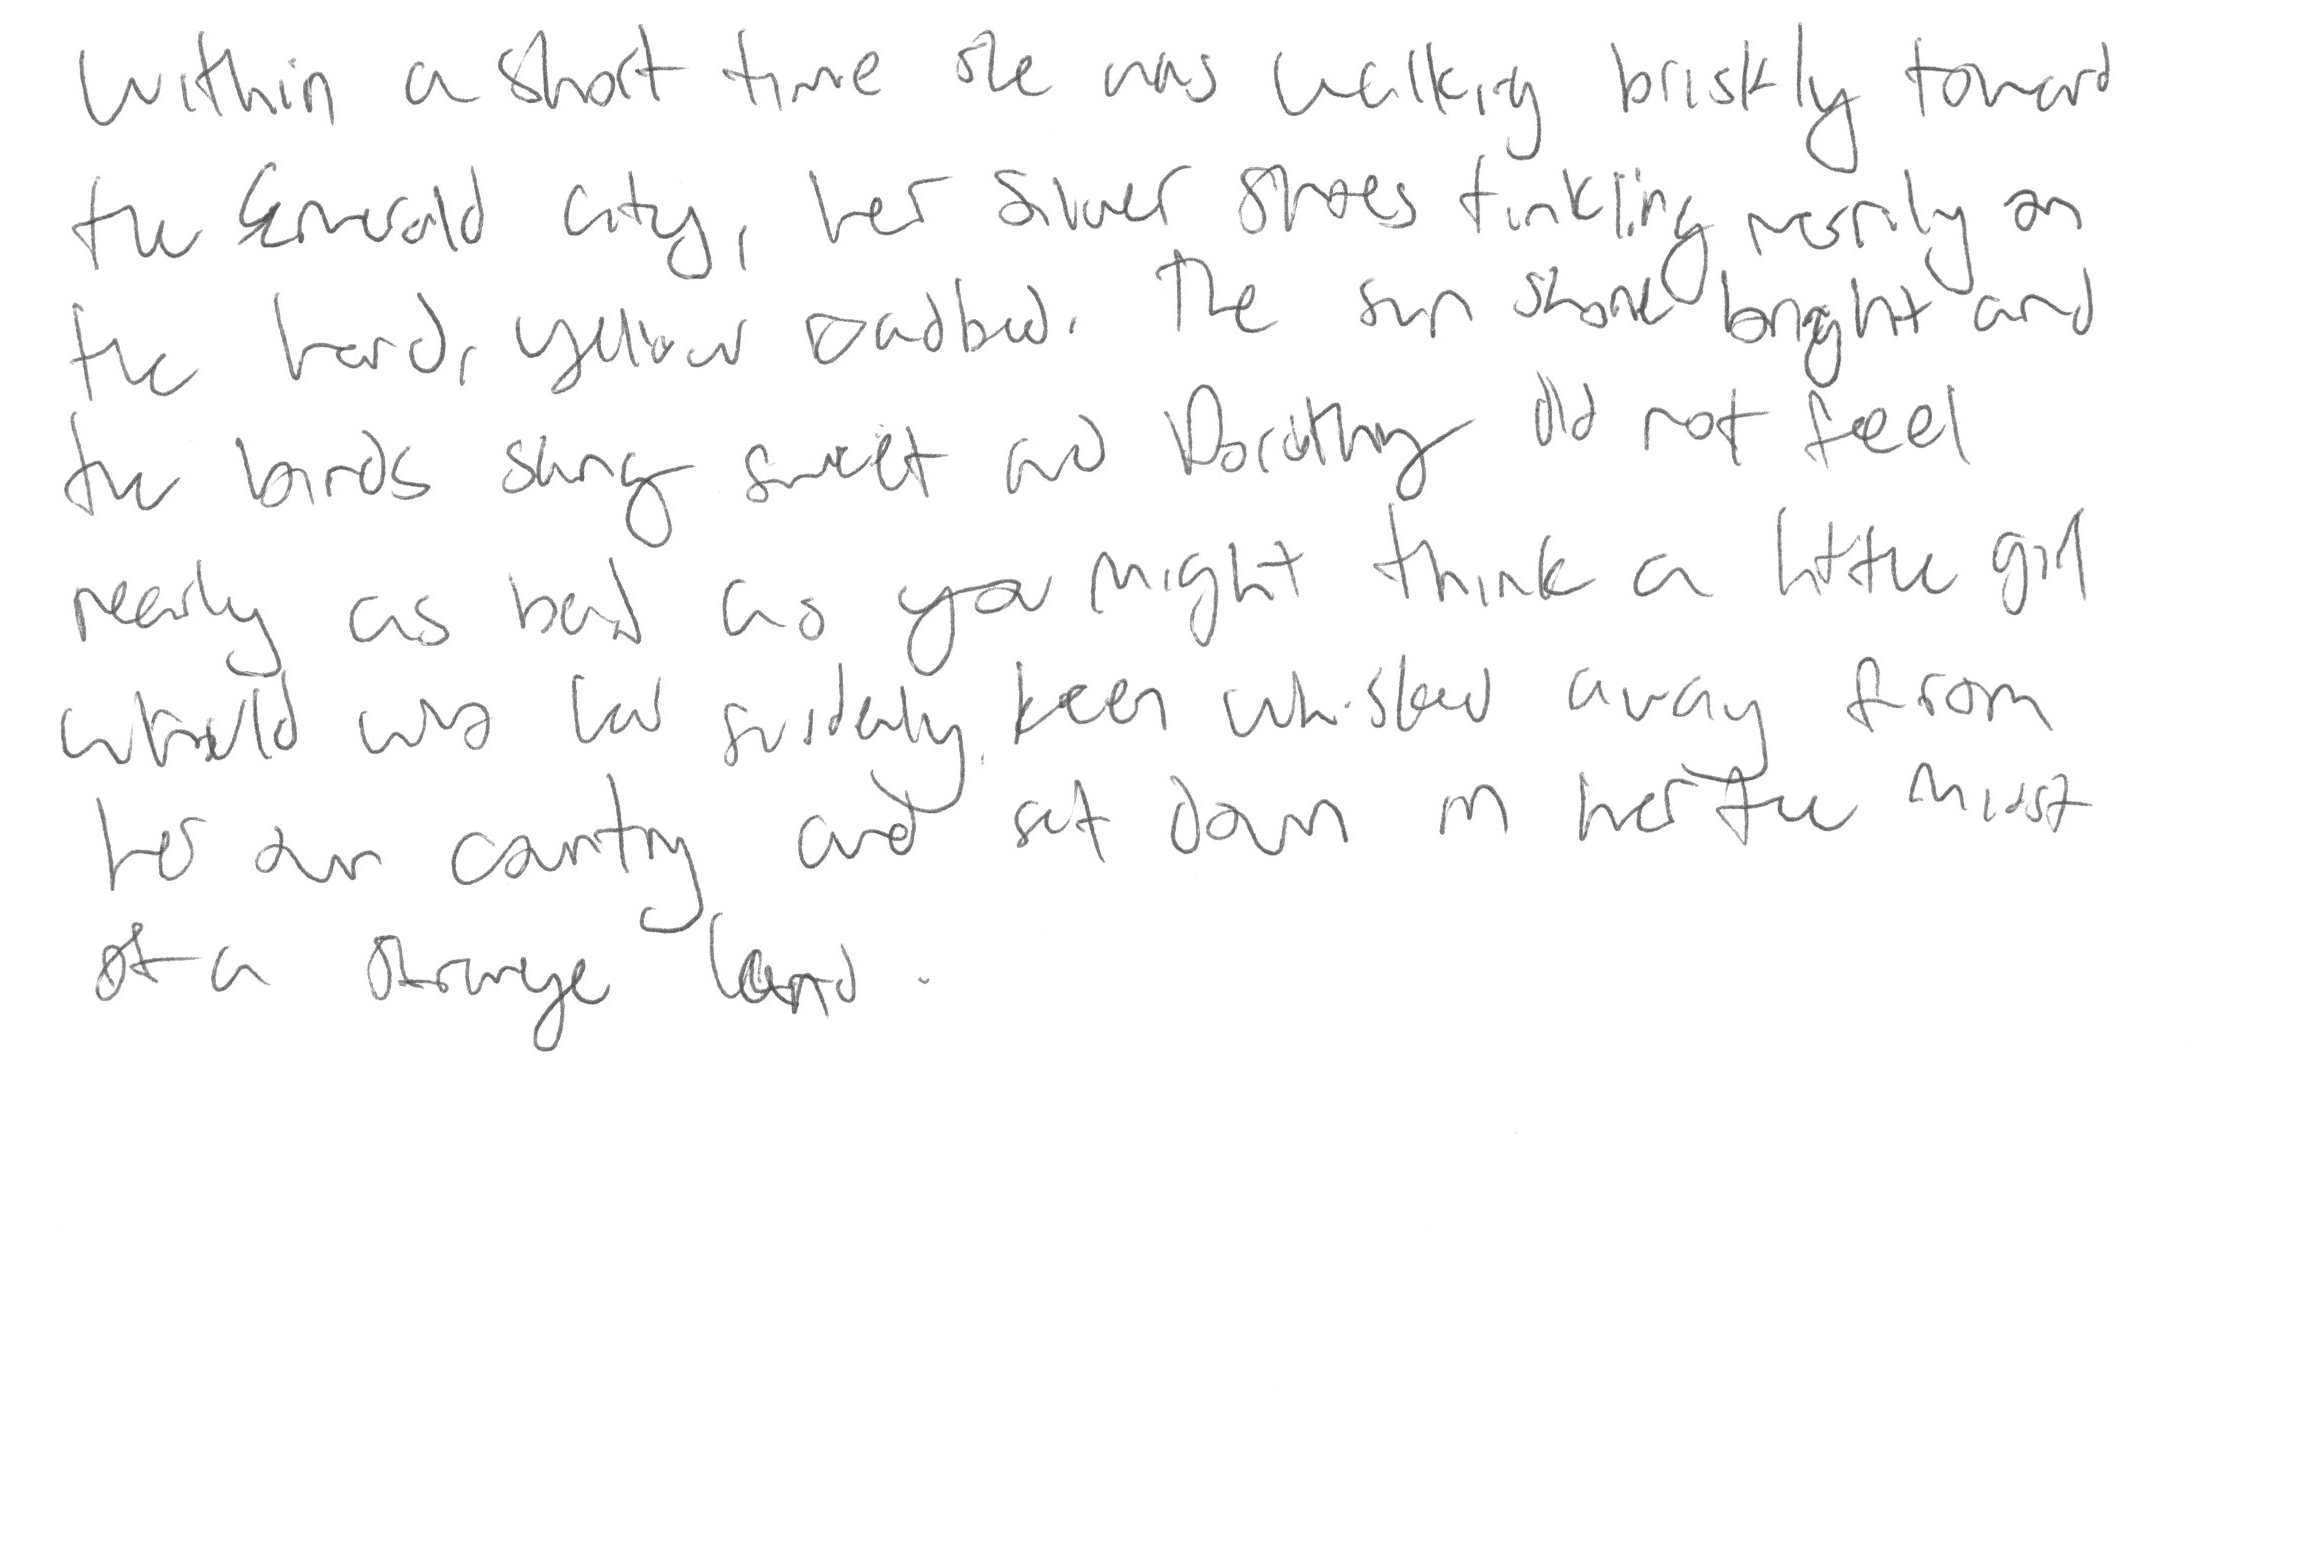 Within a short time she was walking briskly toward
the Emerald City, her Silver Shoes tinkling merrily on
the hard, yellow roadbed. The sun shone bright and
the birds sang sweet and Dorothy did not feel
nearly as bad as you might think a little girl
would who had suddenly been whisked away from
her own country and set down in her the midst
of a strange land.